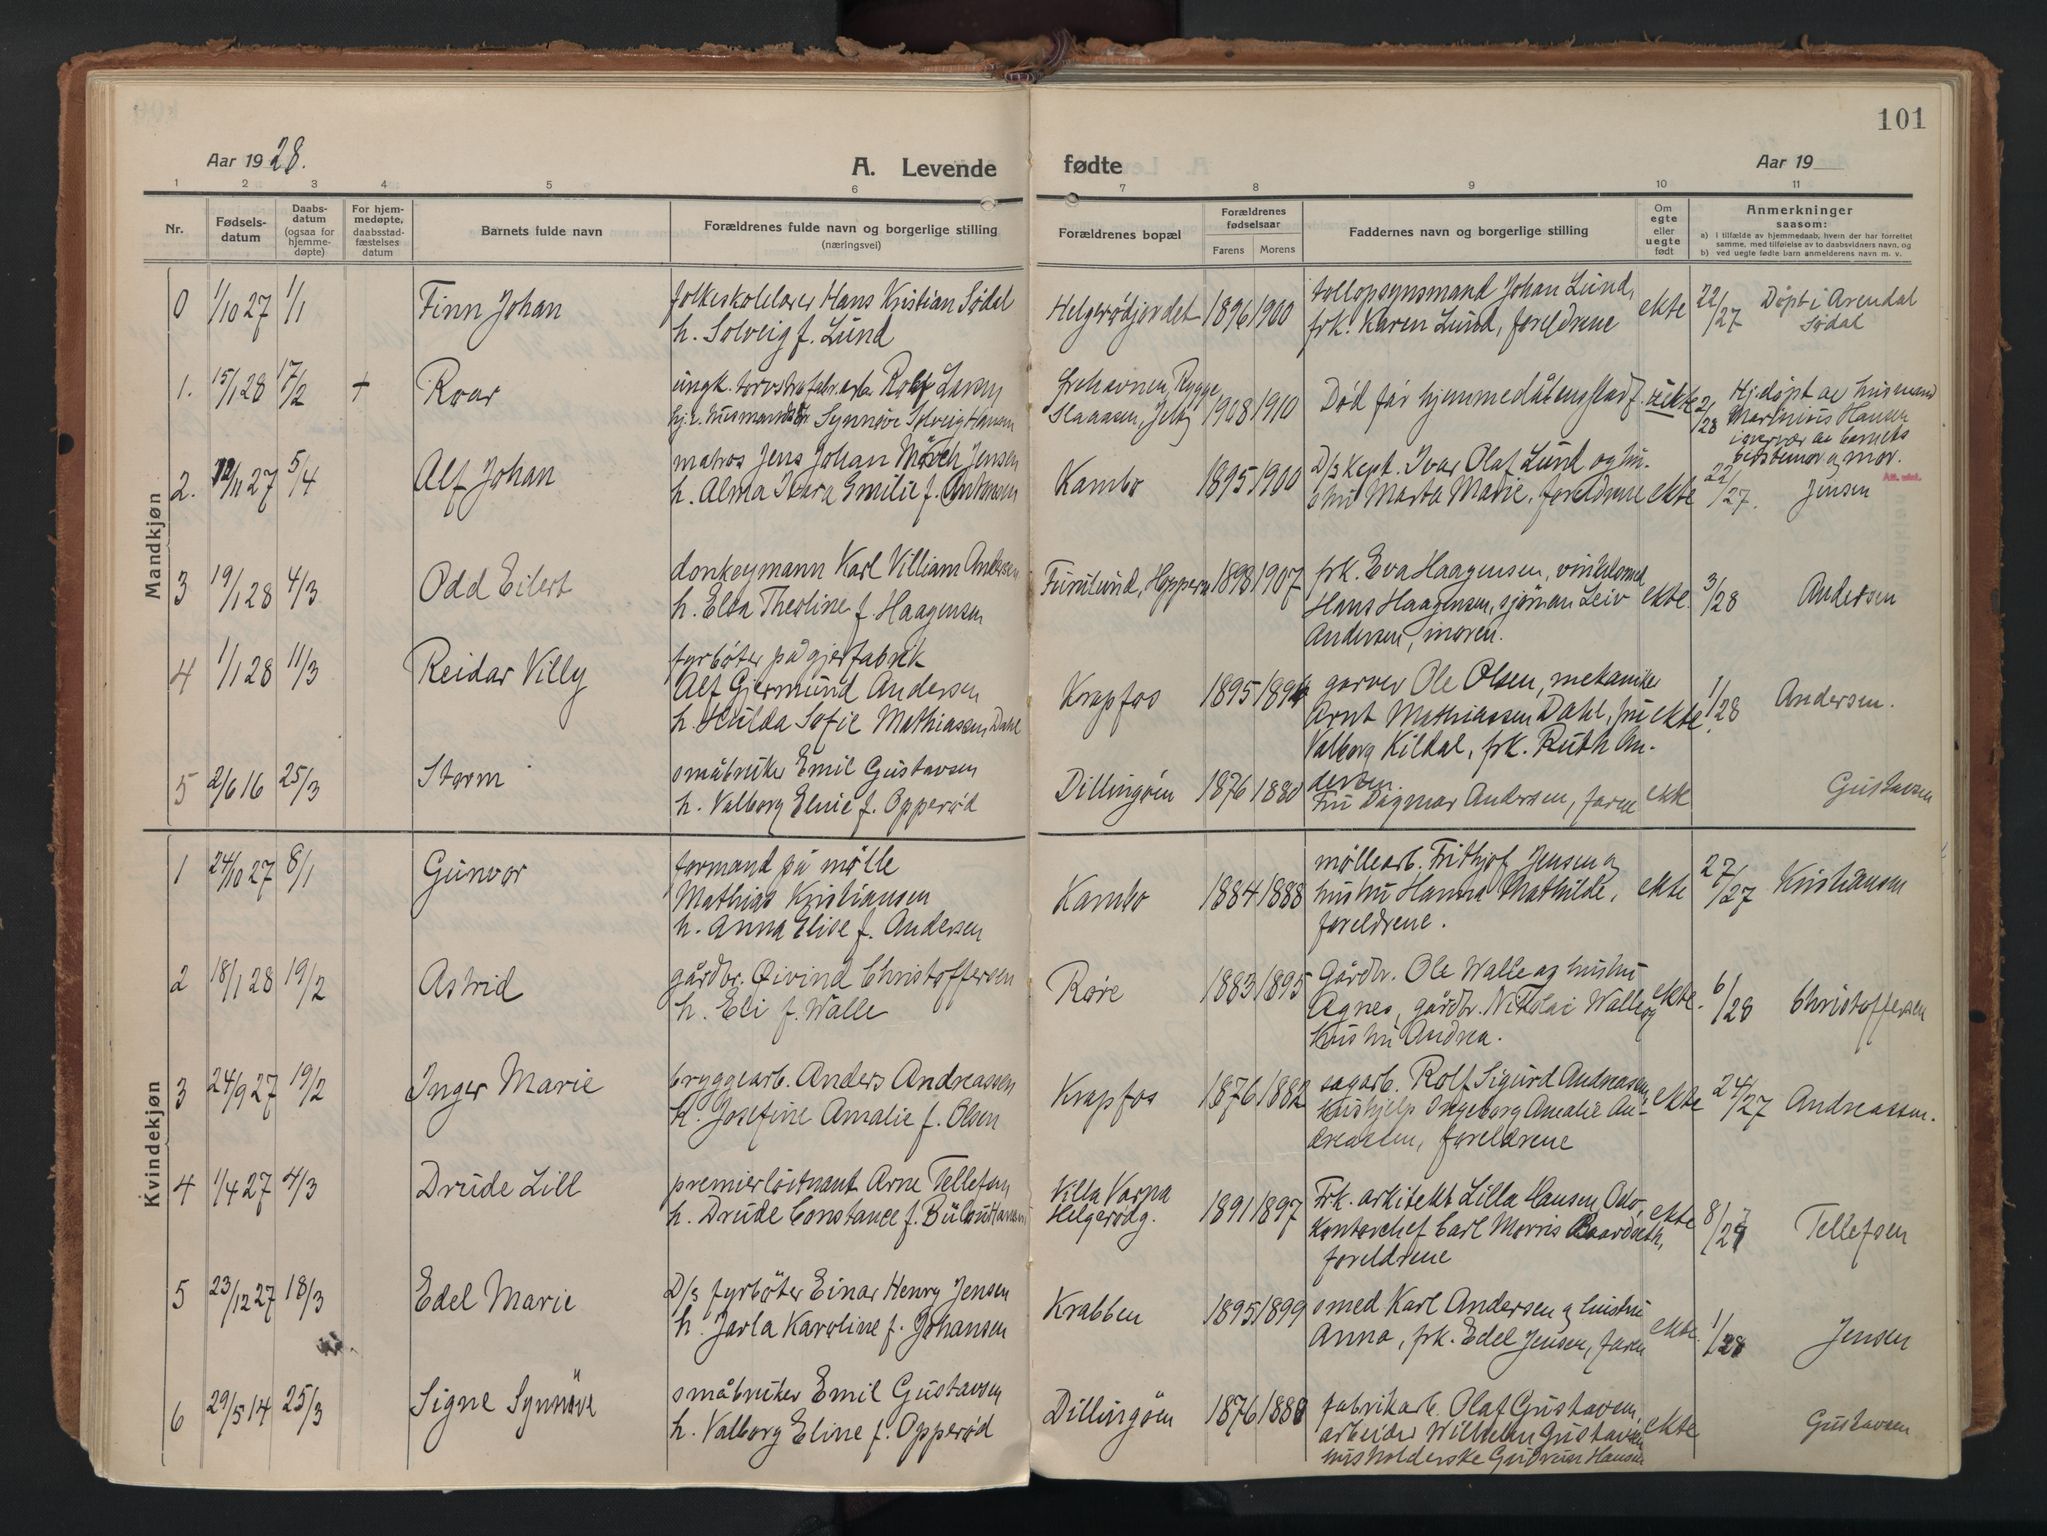 101
Aar 1928.
A. Levende fødte
Aar 19
1 2 3 4 5 6 7 8 9 10 11
Nr.
Fødsels-
datum
Daabs-
datum
(ogsaa for
hjemme-
døpte)
For hjem-
medøpte,
daabsstad-
fæstelses
datum
Barnets fulde navn
Forældrenes fulde navn og borgerlige stilling
(næringsvei)
Forældrenes bopæl
Forældrenes
fødselsaar
Farens Morens
Faddernes navn og borgerlige stilling
Om
egte
eller
uegte
født
Anmerkninger
saasom:
a) i tilfælde av hjemmedaab, hvem der har forrettet
samme, med tilføielse av to daabsvidners navn, og
b) ved uegte fødte barn anmelderens navn m. v.
Mandkjøn
0 1/10 27 1/1 Finn Johan
folkeskolelærer Hans Kristian Sødal
h. Solveig f. Lund
Helgerødjordet 1896 1900
tollopsynsmand Johan Lund,
frk. Karen Lund, foreldrene
ekte 22/27 Døpt i Arendal
Sødal
1. 15/1 28 17/2 + Roar
ungk. Rolf
hj. Synnøve Solveig Hansen
Rygge
Jeløy 1908 1910
Død før hjemmedåben stadf.
uekte 2/28 Hj.døpt av husmand
Marinius Hansen
i overvær av barnets
bestemor og mor.
2. 5/4 Alf Johan
matros Jens Johan Mørch Jensen
h. Alma Emilie f.
Kambo 1895 1900
D/s kapt. Ivar Olaf Lund og hu-
stru Marta Marie, foreldrene
ekte 22/27. Jensen
3 19/1 28 4/3 Odd Eilert
donkeymann Karl Villiam Andersen
h. Elsa Theoline f. Haagensen
Furulund, 1898 1907
frk. Eva Haagensen,
Hans Haagensen, sjøman Leiv
Andersen, moren.
ekte. 3/28 Andersen
4 1/1 28 11/3 Reidar Villy
fyrbøter på gjerfabrik
Alf Gjermund Andersen
h. Hulda Sofie Mathiassen Dahl
Krapfos 1895
garver Ole Olsen, mekaniker
Arnt Mathiassen Dahl, fru
Valborg Kildal, frk. Ruth An-
dersen.
ekte 1/28 Andersen.
5 2/6 16 25/3 Storm
småbruker Emil Gustavsen
h. Valborg Eline f. Opperød
Dillingøen 1876 1880
Fru Dagmar Andersen, faren
ekte Gustavsen
Kvindekjøn
1 24/10 27 8/1 Gunvor
formand på mølle
Mathias Kristiansen
h. Anna Elise f. Andersen
Kambo 1884 1888
møllearb. Frithjof Jensen og
hustru Hanna Mathilde,
foreldrene.
ekte 27/27 Kristiansen
2 18/1 28 19/2 Astrid
gårdbr. Øivind Christoffersen
h. Eli f. Walle
Røre 1883 1895
Gårdbr. Ole Walle og hustru
Agnes, gårdbr. Nikolai Walle og
hustru Andrea.
ekte. 6/28 Christoffersen
3 24/9 27 19/2 Inger Marie
bryggearb. Anders Andreassen
h. Josefine Amalie f. Olsen
Krapfos 1876 1882
sagarb. Rolf Sigurd Andreassen
hushjelp Ingeborg Amalie An-
dreassen, foreldrene
ekte 24/27 Andreassen.
4 1/4 27 4/3 Drude Lill
premierløitnant Arne Tellefsen
h. Drude Constance f.
Villa Varna
Helgerødg. 1891 1897
Frk. arkitekt Lilla Hansen, Oslo,
Kontorchef Carl Morris
foreldrene
ekte Tellefsen
5 23/12 27 18/3 Edel Marie
D/s fyrbøter Einar Henry Jensen
h. Jarla Karoline f. Johansen
Krabben 1895 1899
smed Karl Andersen og hustru
Anna, frk. Edel Jensen, faren
ekte. 1/28 Jensen
6 29/5 14 25/3 Signe Synnøve
småbruker Emil Gustavsen
h. Valborg Eline f. Opperød
Dillingøen 1876 1880
fabrikarb. Olaf Gustavsen,
arbeider Wilhelm Gustavsen
husholderske Gudrun Hansen
ekte Gustavsen